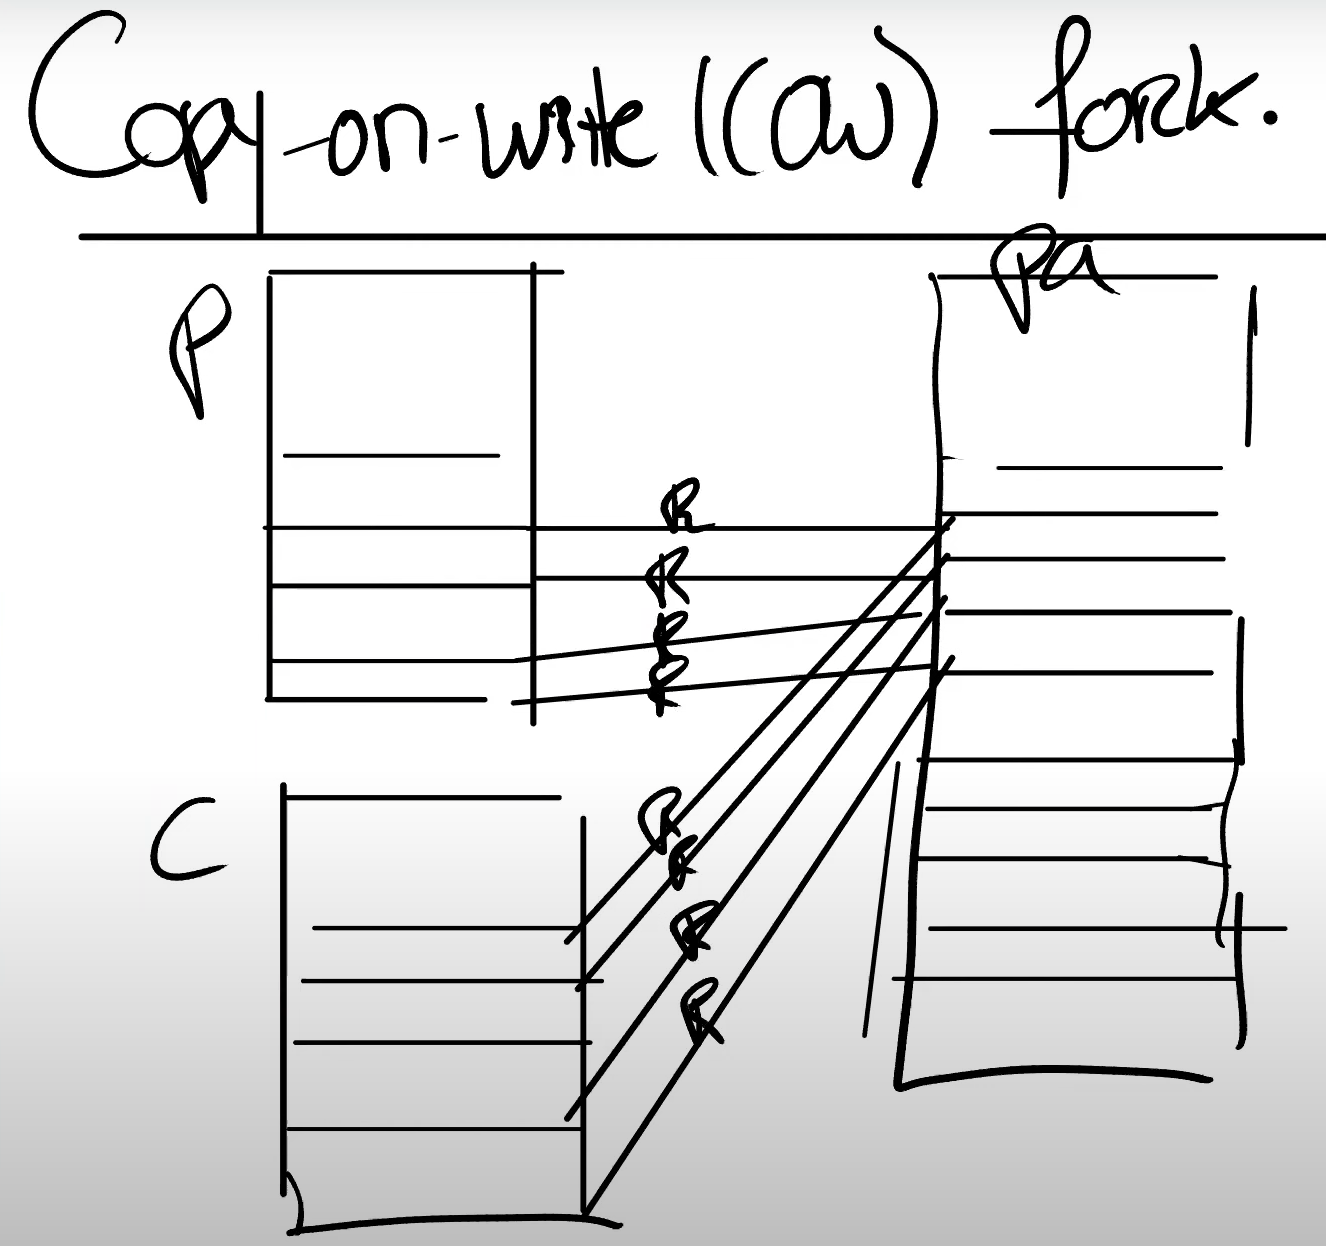 Copy-on-write (COW) fork.
pa
P
R
R
R
R
C
R
R
R
R